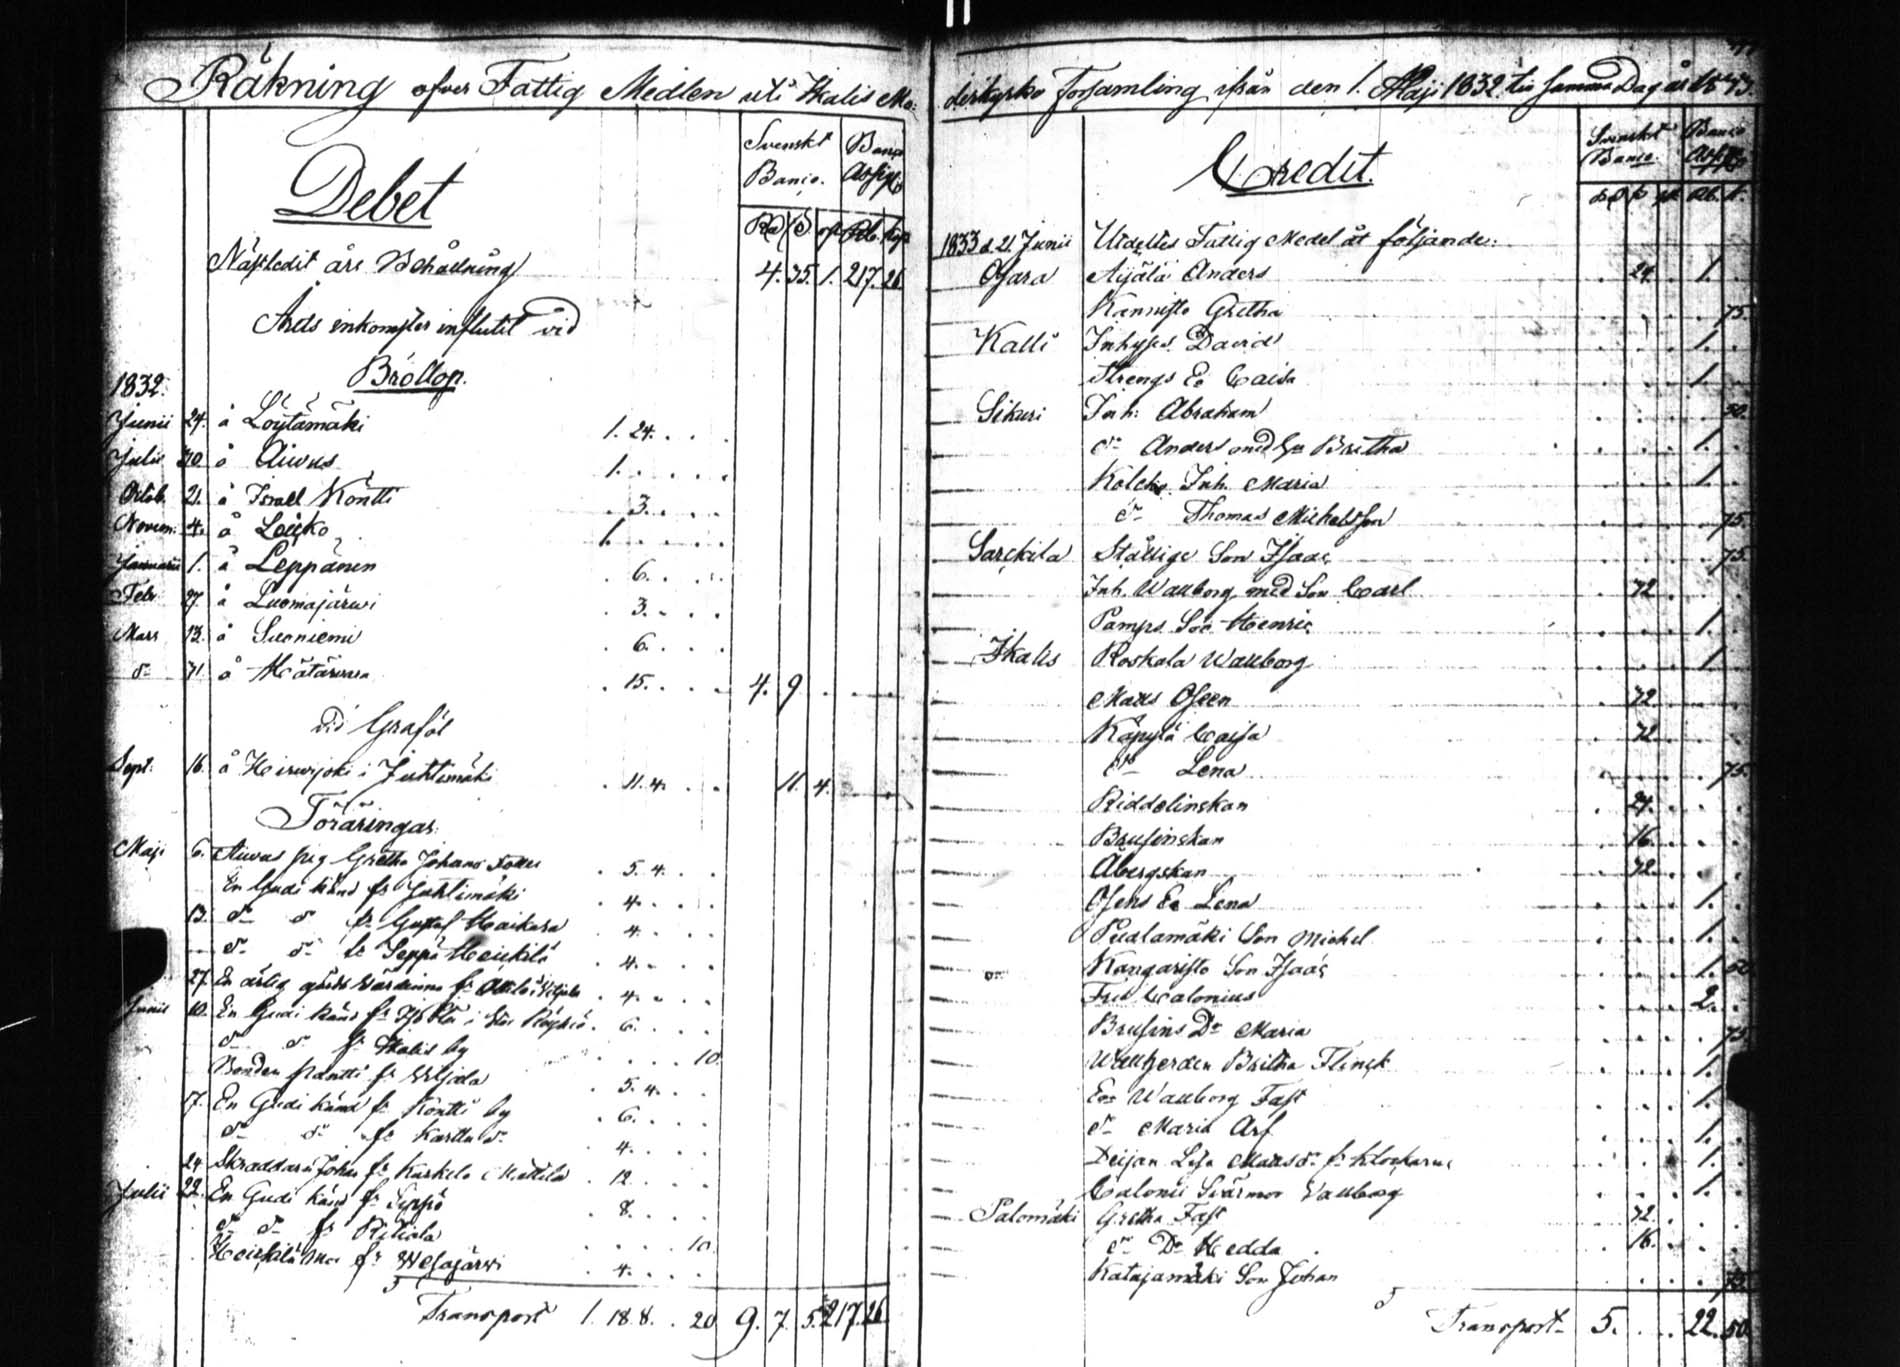 Räkning öfver Fattig Medlen uti Ikalis Mo:
Debet
Svenskt Banco. Banco Assig:
Rd ß rst Rb. Kop
Nästledit års Behållning 4. 35. 1. 217. 26
Årets inkomster influtit vid
Bröllop.
1832.
Junii 24. å Löytämäki 1. 24.
Julii å Aiwus 1.
Octob. 21. å Israel Köntti 3.
Novem. 4. å Louko 1.
Januarii 1. å Leppänen 6.
Febr 27. å Luomajärwi 3.
Mars 13. å Suoniemi 6.
d:o å 15. 4. 9
vid Graföl
Sept: 16. å Hirwijoki i Juhtimäki 11. 4. 11. 4.
Föräringar.
Maji 6. Aiwus pig Gretha Johans 5. 4.
En Gudi känd fr Juhtimäki 4.
13. d:o d:o fr Gustaf Haikara 4.
d:o d:o fr Seppä Heickilä 4.
27. En ärlig gårds wärdinna fr 4.
Junii 10. En Gudi känd fr i 6.
d:o d:o fr Ikalis by 10.
Bonden fr Wiljala 5. 4.
17. En Gudi känd fr Köntti by 6.
d:o d:o fr Karttu d:o 4.
24. Skraddaren Johan fr Kurkela 12.
Julii 22. En Gudi känd fr Seppä 8.
d:o d:o fr Riitiala 10.
Heickilä fr Wesajärwi 4.
Transport 1. 18. 8. 20 9. 7. 5. 217. 26
derkyrko Församling ifrån den 1. Maji 1832 til samma Dag år
Credit.
Svenskt Banco. Banco Assig:
Rb. K.
1833 d. 21 Junii Utdeltes Fattig Medel åt följande:
Osara Äijälä Anders 24. 1.
Kannisto Gretha 75.
Kalli Inhyses David 1.
Strengs Ee Caisa 1.
Sikuri Inh: Abraham 50.
d:o Anders med Hu Britha 1.
Inh. Maria 1.
d:o Thomas Michelsson 75.
Sarckila Ställige Son Isaac 75.
Inh. Wallborg med Son Carl 72
Pamps Son Henric 1.
Ikalis Koskala Wallborg 1
Matts Oseen 72.
Käpylä Caisa 72
d:o Lena 75.
Riddelinskan 24.
Brusinskan 16.
Åbergskan 72.
Osens Ee Lena 1.
Pudlamäki Son Michel 1.
Kangaristo Son Isaac 1. 50
Fru Calonius 2.
Brusins D:r Maria 75
Britha Flinck 1.
Enk Wallborg Fast 1.
d:o Maria Arf 1.
Pigan Lisa Matts d:r fr Klockarns 1.
Calonii Svärmor Wallborg 1.
Palomäki Gretha Fast 72.
d:o D:r Hedda 16.
Katajamäki Son Johan 75.
Transport 5. 22. 50